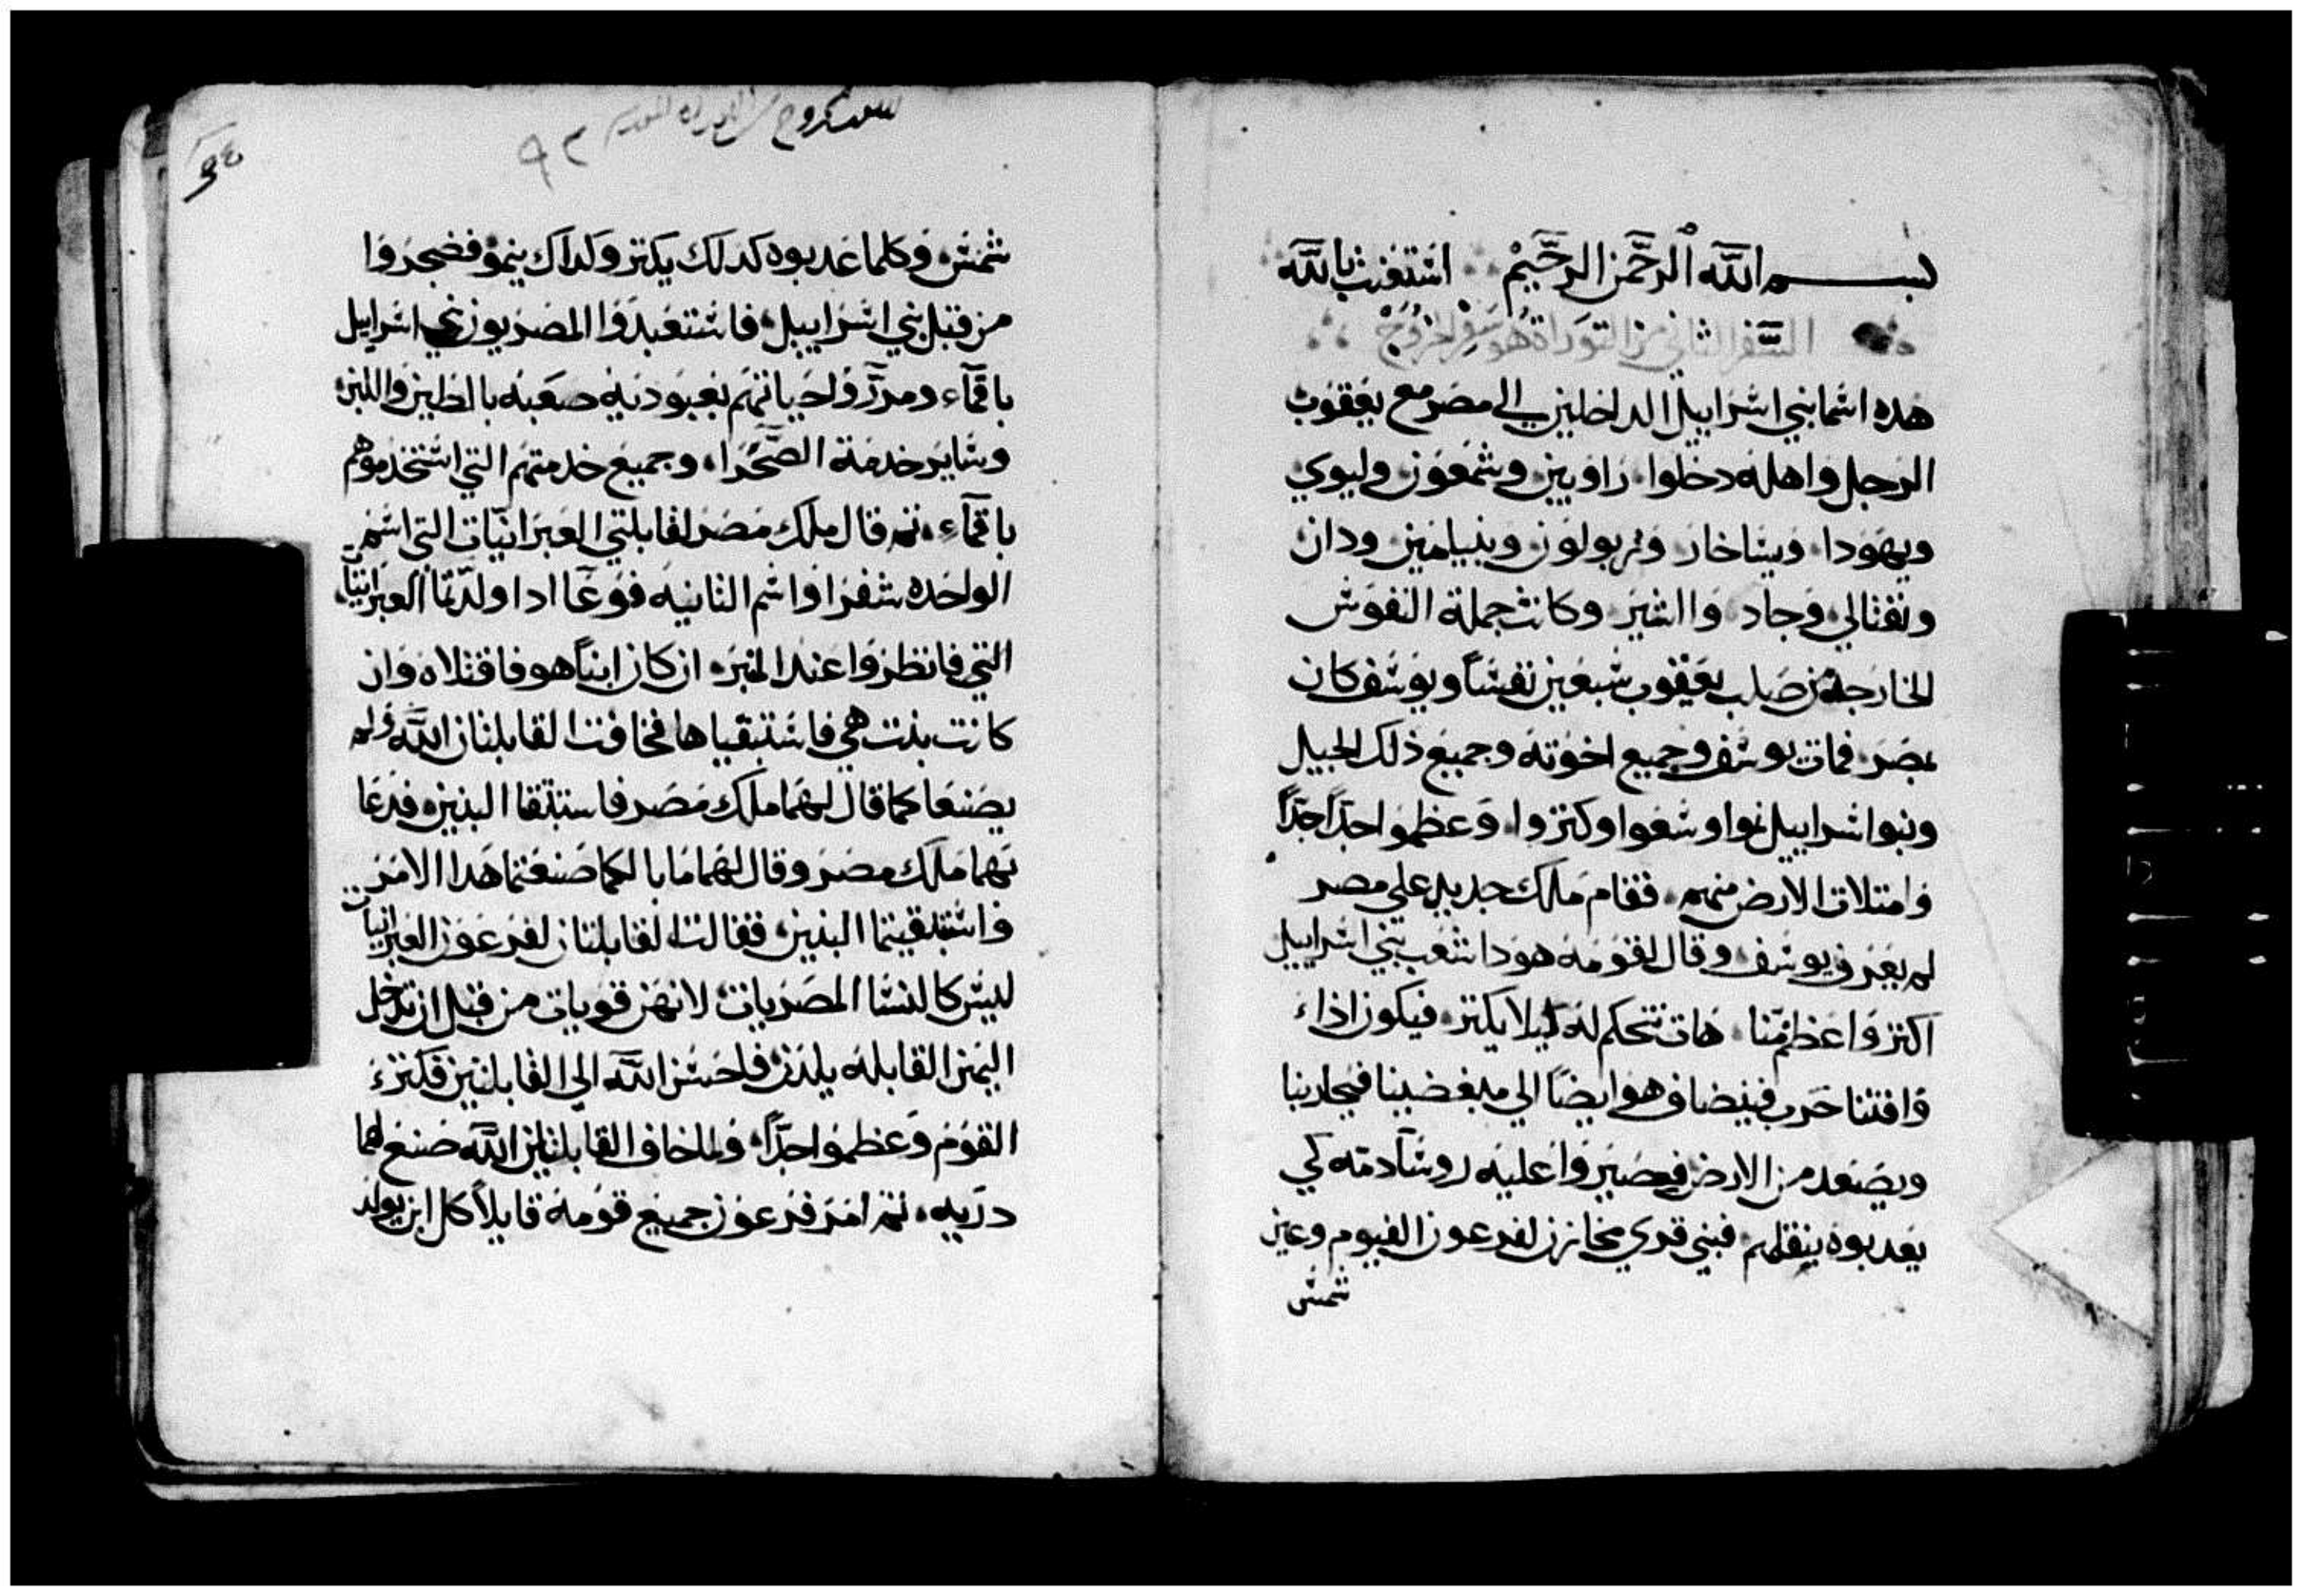 بسم الله الرحمن الرحيم استغثت بالله
السفر الثاني من التوراة هو سفر الخروج
هذه اسما بني اسراييل الداخلين الي مصر مع يعقوب
الرجل واهله دخلوا راوبين وشمعون وليوي
ويهودا ويساخار وزبولون وبنيامين ودان
ونفتالي وجاد واشير وكانت جملة النفوس
الخارجة من صلب يعقوب سبعين نفسًا ويوسف كان
بمصر فمات يوسف وجميع اخوته وجميع ذلك الجيل
وبنوا اسراييل نموا وسعوا وكتروا وعظموا جدًا جدًا
وامتلات الارض منهم فقام ملك جديد علي مصر
لم يعرف يوسف وقال لقومه هودا شعب بني اسراييل
اكتر واعظم منا هات نتحكم له ليلا يكتر فيكون اذاء
وافتنا حرب فينضاف هو ايضًا الي مبغضينا فيحاربنا
ويصعد من الارض فصيروا عليه روسآ دمته كي
يعدبوه بثقلهم فبني قري مخازن لفرعون الفيوم وعين
شمس
٩٢
شمس وكلما عدبوه كدلك يكتر وكداك ينمو فضجروا
من قبل بني اسراييل فاستعبدوا المصريون بني اسراييل
باقمآء ومرروا حياتهم بعبودية صعبه بالطين واللبن
وساير خدمة الصحرا وجميع خدمتهم التي استخدموهم
باقمآء ثم قال ملك مصر لقابلتي العبرانيات التي اسم
الواحده شفرا واسم الثانيه فوعا ادا ولدتما العبرانيات
التي فانظروا عند الخبره ان كان ابنًا هو فاقتلاه وان
كانت بنت هي فاستبقياها فخافت القابلتان الله ولم
يصنعا كما قال لهما ملك مصر فاستبقا البنين فدعا
بهما ملك مصر وقال لهما ما بالكما صنعتما هدا الامر
واستبقيتما البنين فقالتا القابلتان لفرعون العبرانيات
ليس كالنسا المصريات لانهن قويات من قبل ان تدخل
اليهن القابله يلدن فاحسن الله الي القابلتين فكتر
القوم وعظموا جدًا ولما خاف القابلتان الله صنع لهما
دريه ثم امر فرعون جميع قومه قايلاً كل ابن يولد